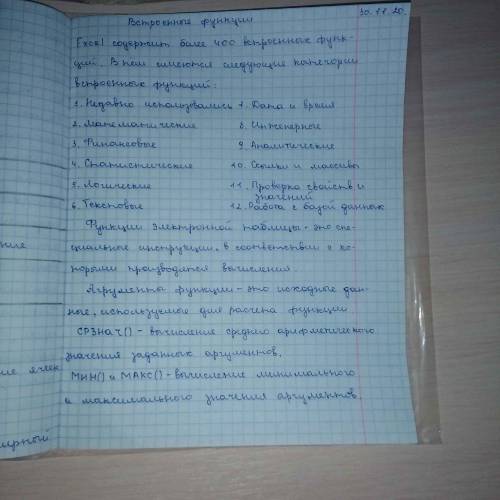 Встроенные функции 30.11.20.
Excel содержит более 400 встроенных функ-
ций. В нем имеются следующие категории
встроенных функций:
1. Недавно использовались 7. Дата и время
2. Математические 8. Инженерные
3. Финансовые 9. Аналитические
4. Статистические 10. Ссылки и массивы
5. Логические 11. Проверка свойств и
значений
6. Текстовые 12. Работа с базой данных
Функции электронной таблицы - это спе-
циальные инструкции, в соответствии с ко-
торыми производятся вычисления.
Аргументы функции - это исходные дан-
ние
ные, используемые для расчета функции.
СРЗНАЧ() - вычисление среднего арифметического
значения заданных аргументов.
ие ячеек
МИН() и МАКС() - вычисление минимального
и максимального значения аргументов.